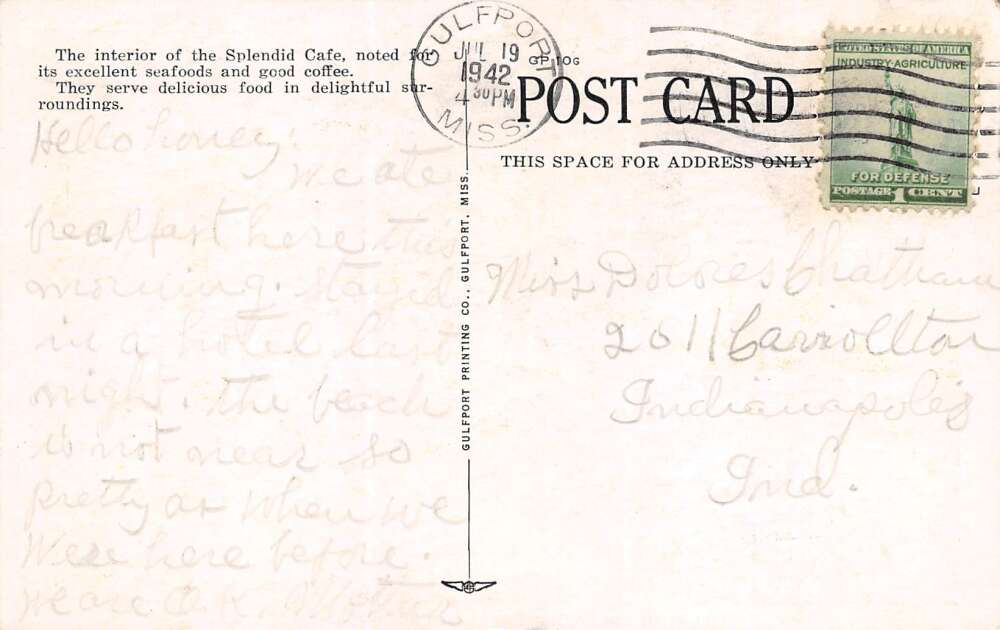 The interior of the Splendid Cafe, noted for
its excellent seafoods and good coffee.
They serve delicious food in delightful sur-
roundings.
GULFPORT
JUL 19
1942
4 30 PM
MISS.
GP-10G
POST CARD
THIS SPACE FOR ADDRESS ONLY
UNITED STATES OF AMERICA
INDUSTRY·AGRICULTURE
FOR DEFENSE
POSTAGE 1 CENT
Hello honey;
We ate
breakfast here this
morning. Stayed
in a hotel last
night. The beach
is not near so
pretty as when we
were here before.
We are O.K. Mother
GULFPORT PRINTING CO., GULFPORT, MISS.
Miss Dolores Chatham
2011 Carrollton
Indianapolis
Ind.